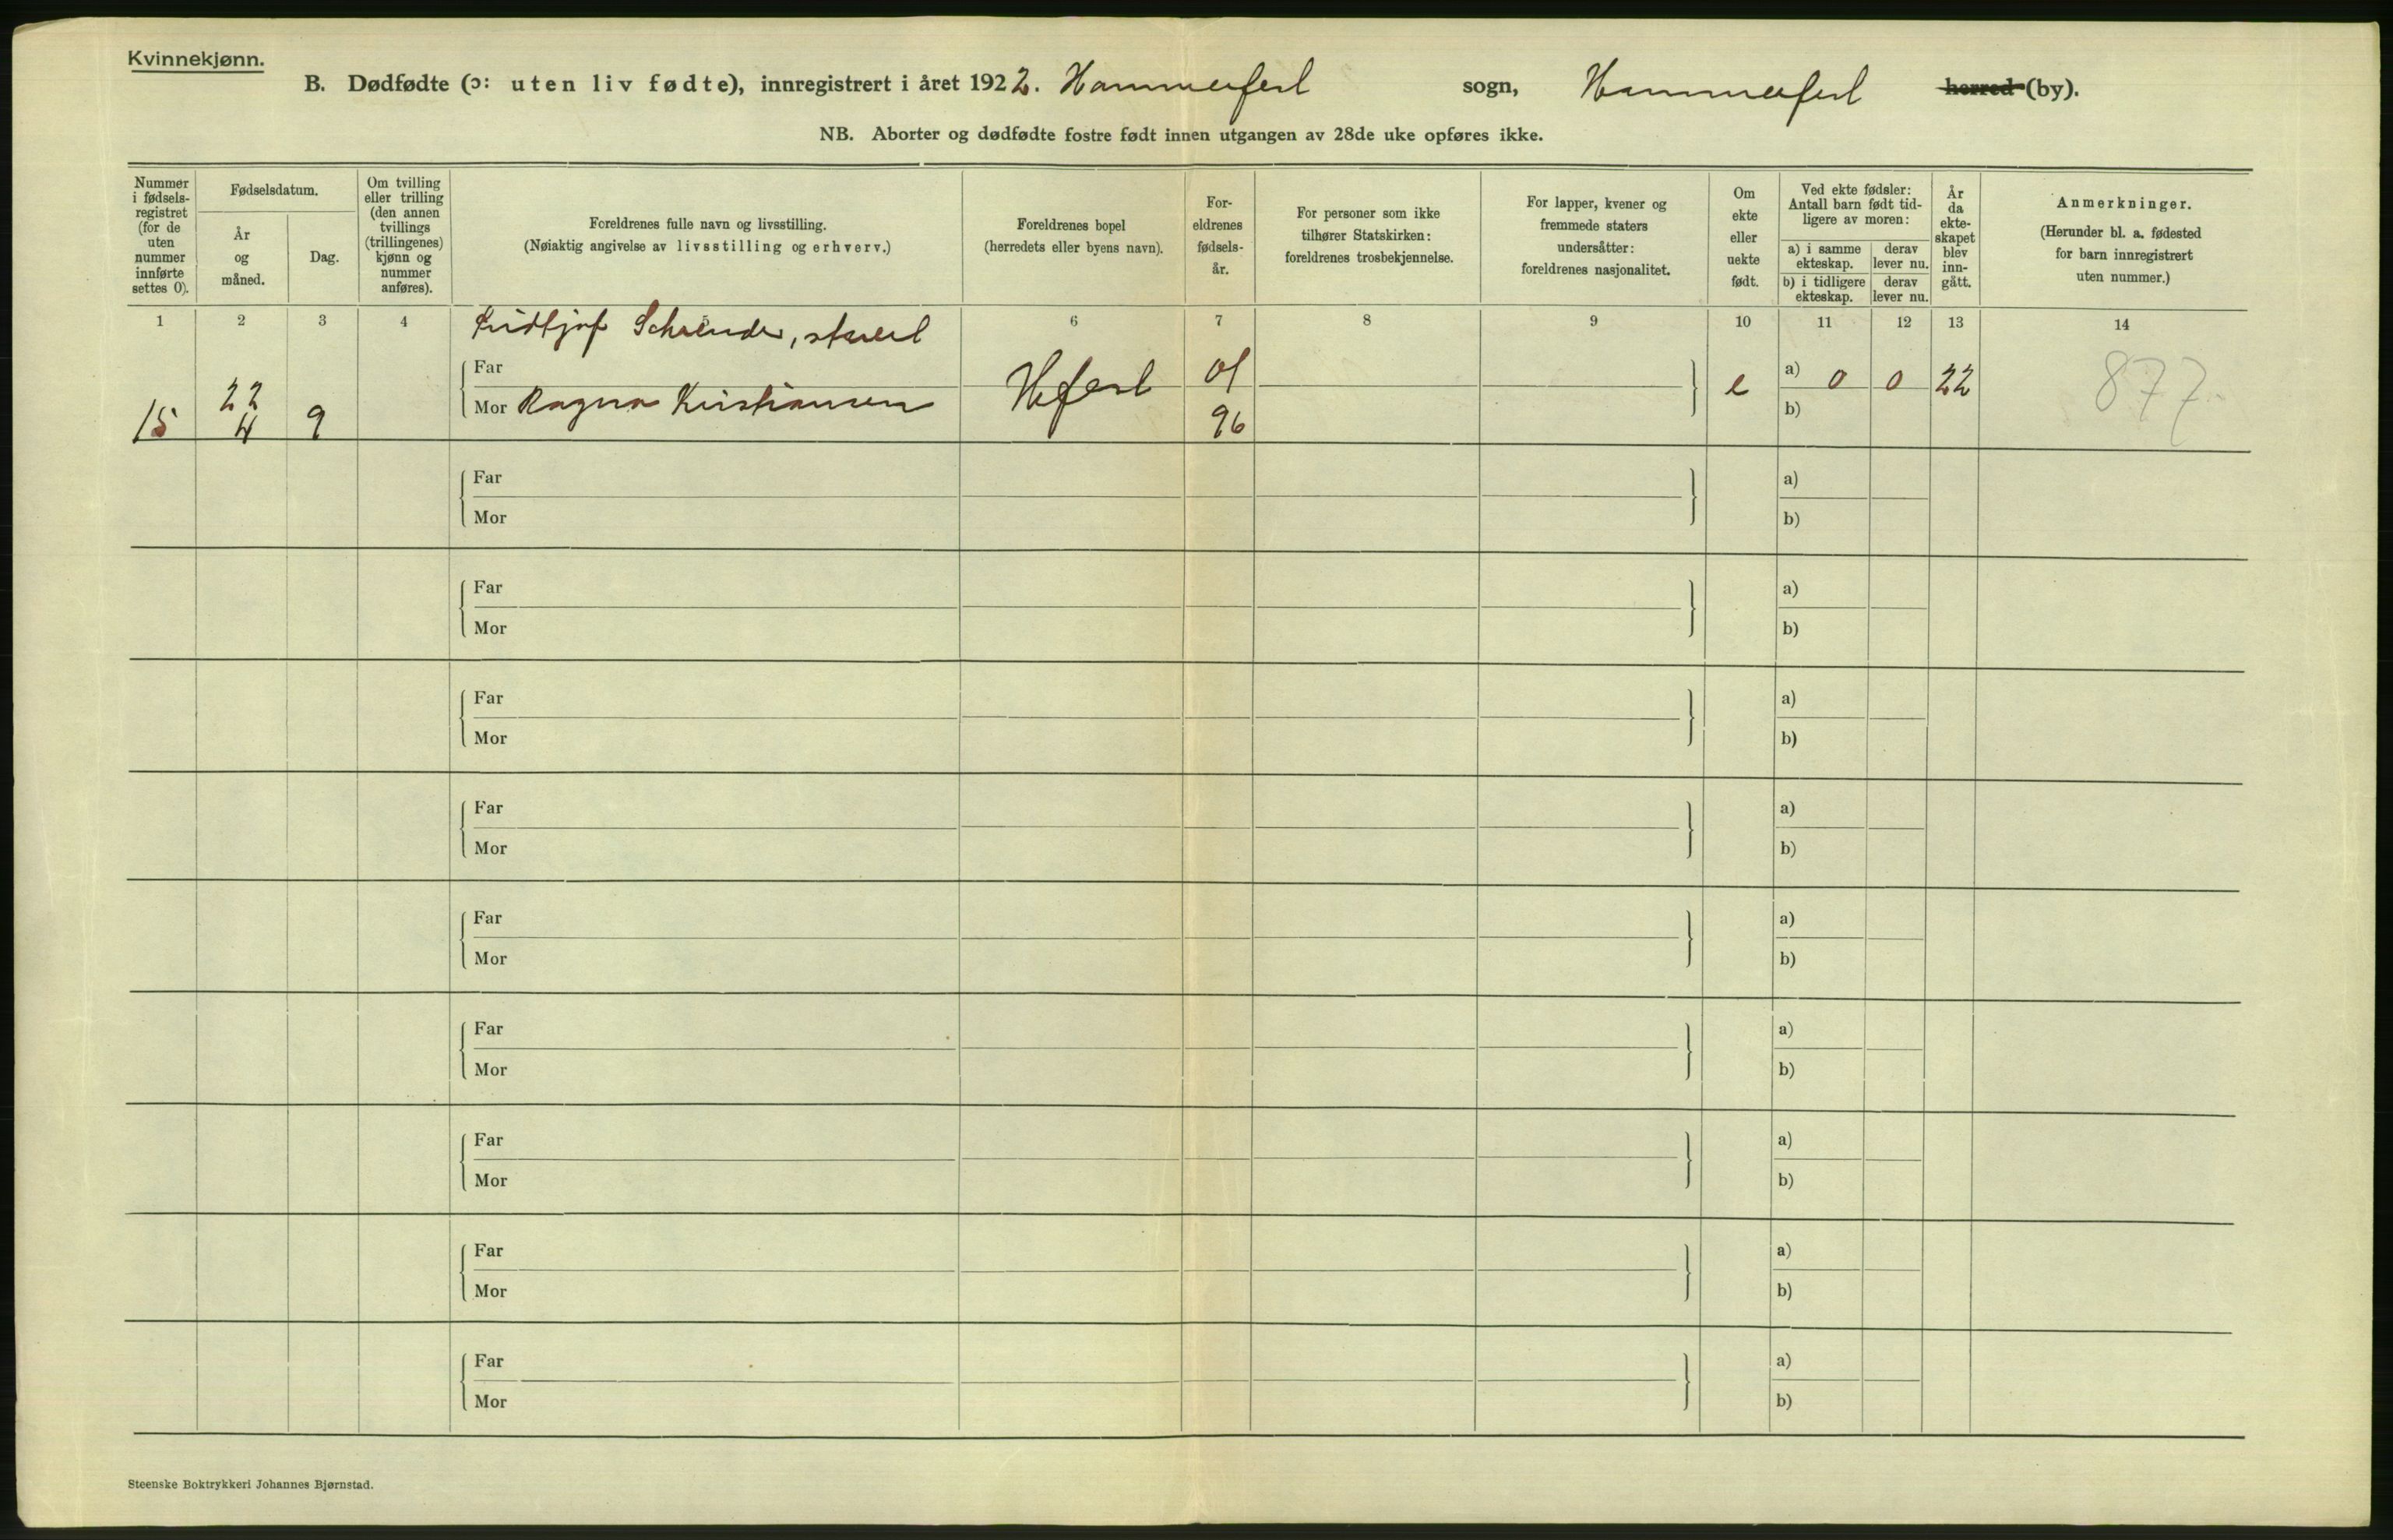 Kvinnekjønn.
B. Dødfødte (ɔ: uten liv fødte), innregistrert i året 1922. Hammerfest sogn, Hammerfest herred (by).
NB. Aborter og dødfødte fostre født innen utgangen av 28de uke opføres ikke.
Nummer i fødsels-registret (for de uten nummer innførte settes 0).
Fødselsdatum.
År og måned.
Dag.
Om tvilling eller trilling (den annen tvillings (trillingenes) kjønn og nummer anføres).
Foreldrenes fulle navn og livsstilling.
(Nøiaktig angivelse av livsstilling og erhverv.)
Foreldrenes bopel
(herredets eller byens navn).
For-eldrenes fødsels-år.
For personer som ikke tilhører Statskirken: foreldrenes trosbekjennelse.
For lapper, kvener og fremmede staters undersåtter: foreldrenes nasjonalitet.
Om ekte eller uekte født.
Ved ekte fødsler: Antall barn født tid-ligere av moren:
a) i samme ekteskap.
derav lever nu.
b) i tidligere ekteskap.
derav lever nu.
År da ekte-skapet blev inn-gått.
Anmerkninger.
(Herunder bl. a. fødested for barn innregistrert uten nummer.)
1 2 3 4 6 7 8 9 10 11 12 13 14
Fridtjof
Far
15 22 4 9
Mor Ragna Kristiansen
Hfest
01
96
e
a) 0 0 22
b)
877
Far a)
Mor b)
Far a)
Mor b)
Far a)
Mor b)
Far a)
Mor b)
Far a)
Mor b)
Far a)
Mor b)
Far a)
Mor b)
Far a)
Mor b)
Far a)
Mor b)
Steenske Boktrykkeri Johannes Bjørnstad.